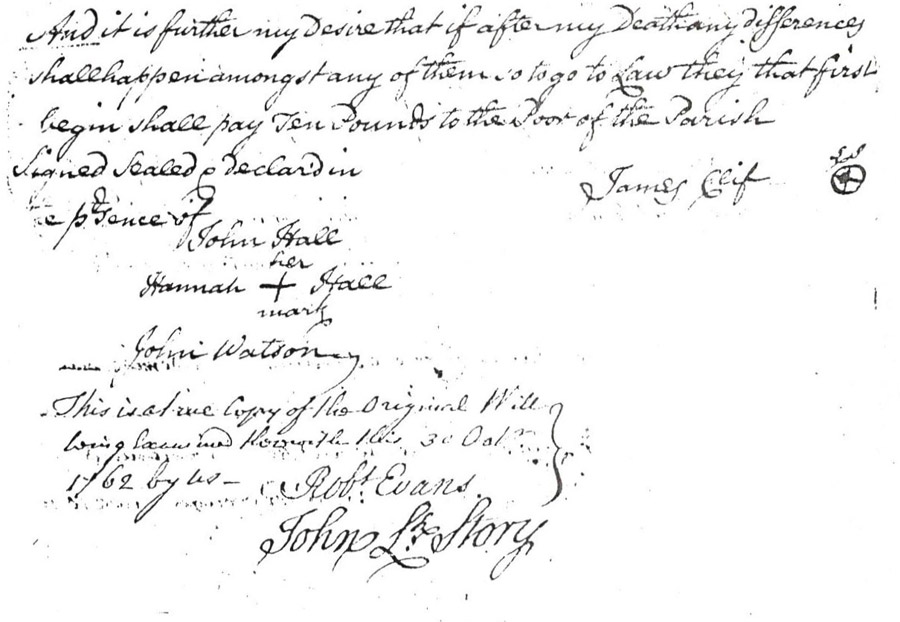 And it is further my Desire that if after my Death any differences
shall happen amongst any of them so to go to Law they that first
begin shall pay Ten Pounds to the Poor of the Parish
Signed Sealed & Declar'd in
James Clif LS
e p'sence of
John Hall
her
Hannah + Hall
mark
John Watson
This is a true Copy of the Original Will
being Examined therewith this 30 Octr
1762 by us -
Robt Evans
John Story